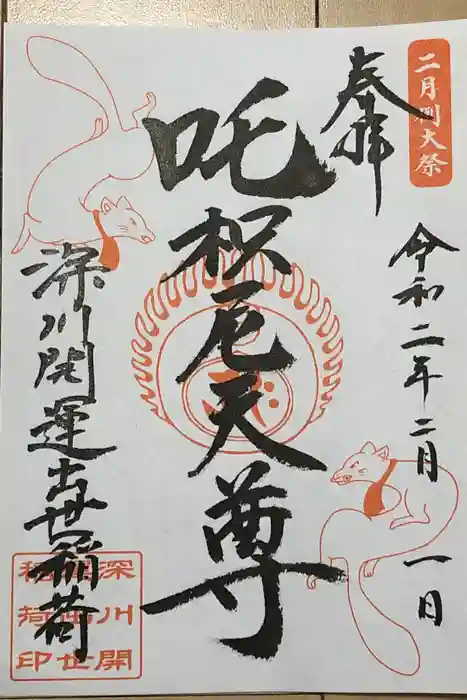 二月例大祭
奉拝
令和二年二月一日
吒枳厄天尊
深川開運出世稲荷
深川開
運出世
稲荷印